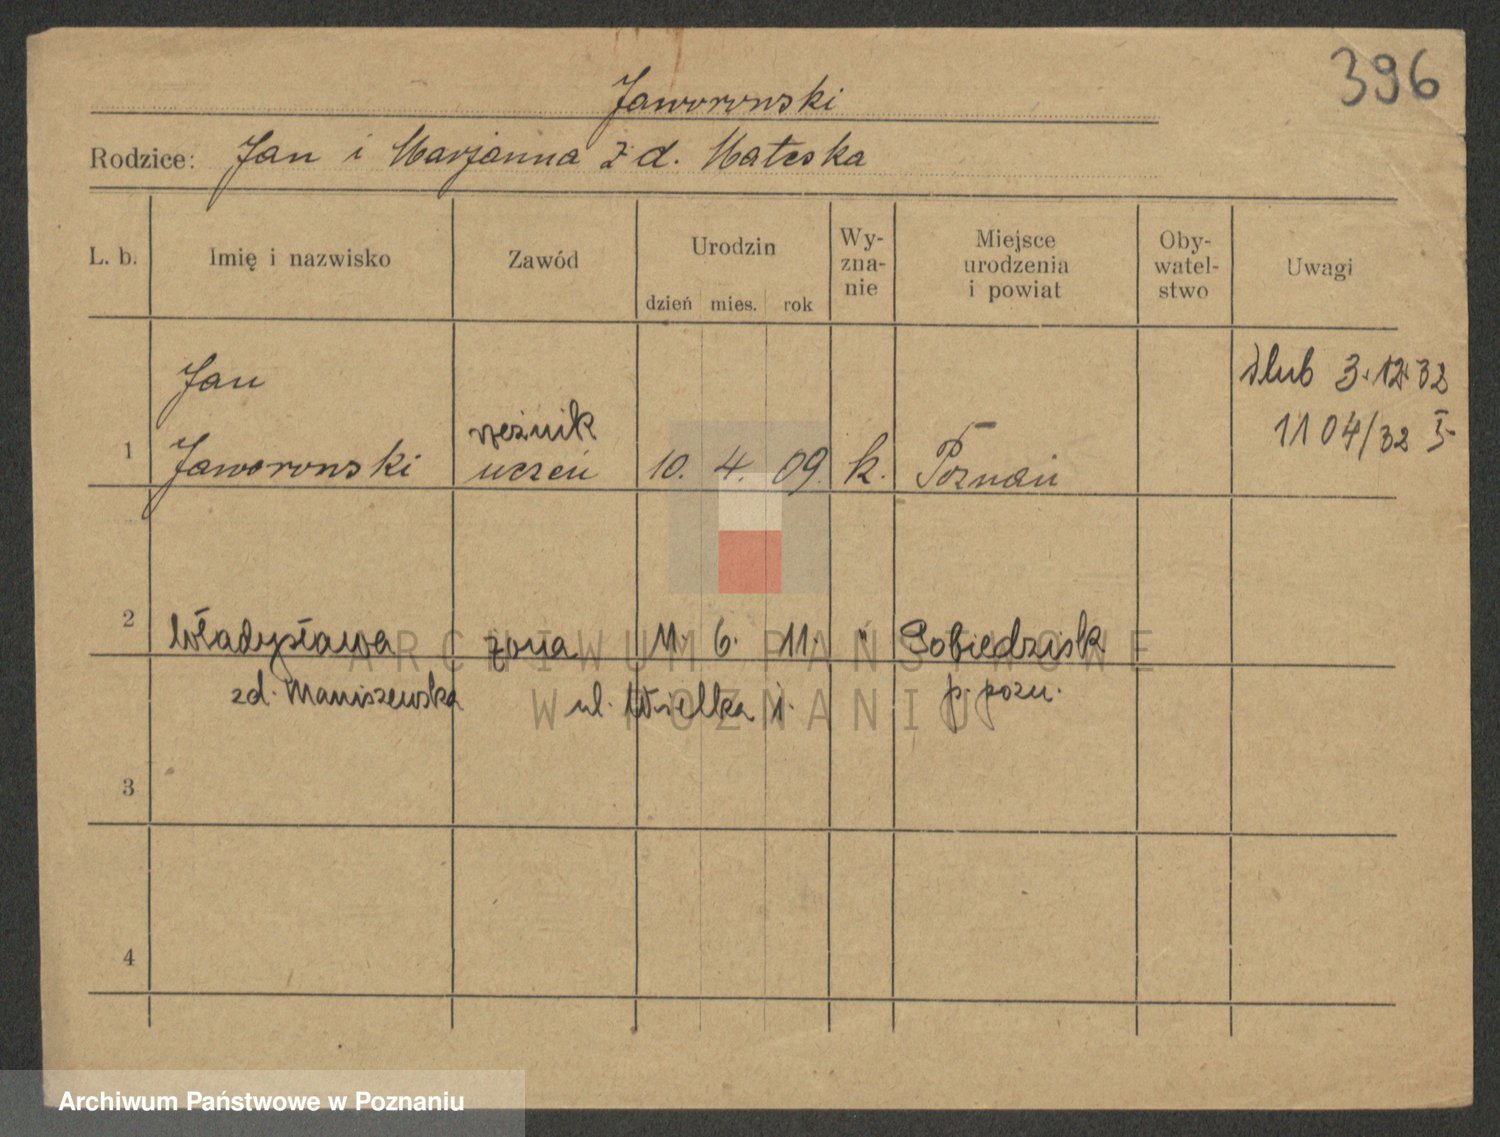 396
Jaworowski
Rodzice: Jan i Marjanna z d. Mateska
L. b.
Imię i nazwisko
Zawód
Urodzin
dzień mies. rok
Wy-
zna-
nie
Miejsce
urodzenia
i powiat
Oby-
watel-
stwo
Uwagi
1
Jan
Jaworowski
rzeźnik
uczeń
10. 4. 09.
k.
Poznań
ślub 3.12.32
1104/32 I
2
Władysława
żona
11. 6. 11.
"
Pobiedzisk
zd. Maniszewska
ul. Wielka 1.
p. pozn.
3
4
ARCHIWUM PAŃSTWOWE
W POZNANIU
Archiwum Państwowe w Poznaniu